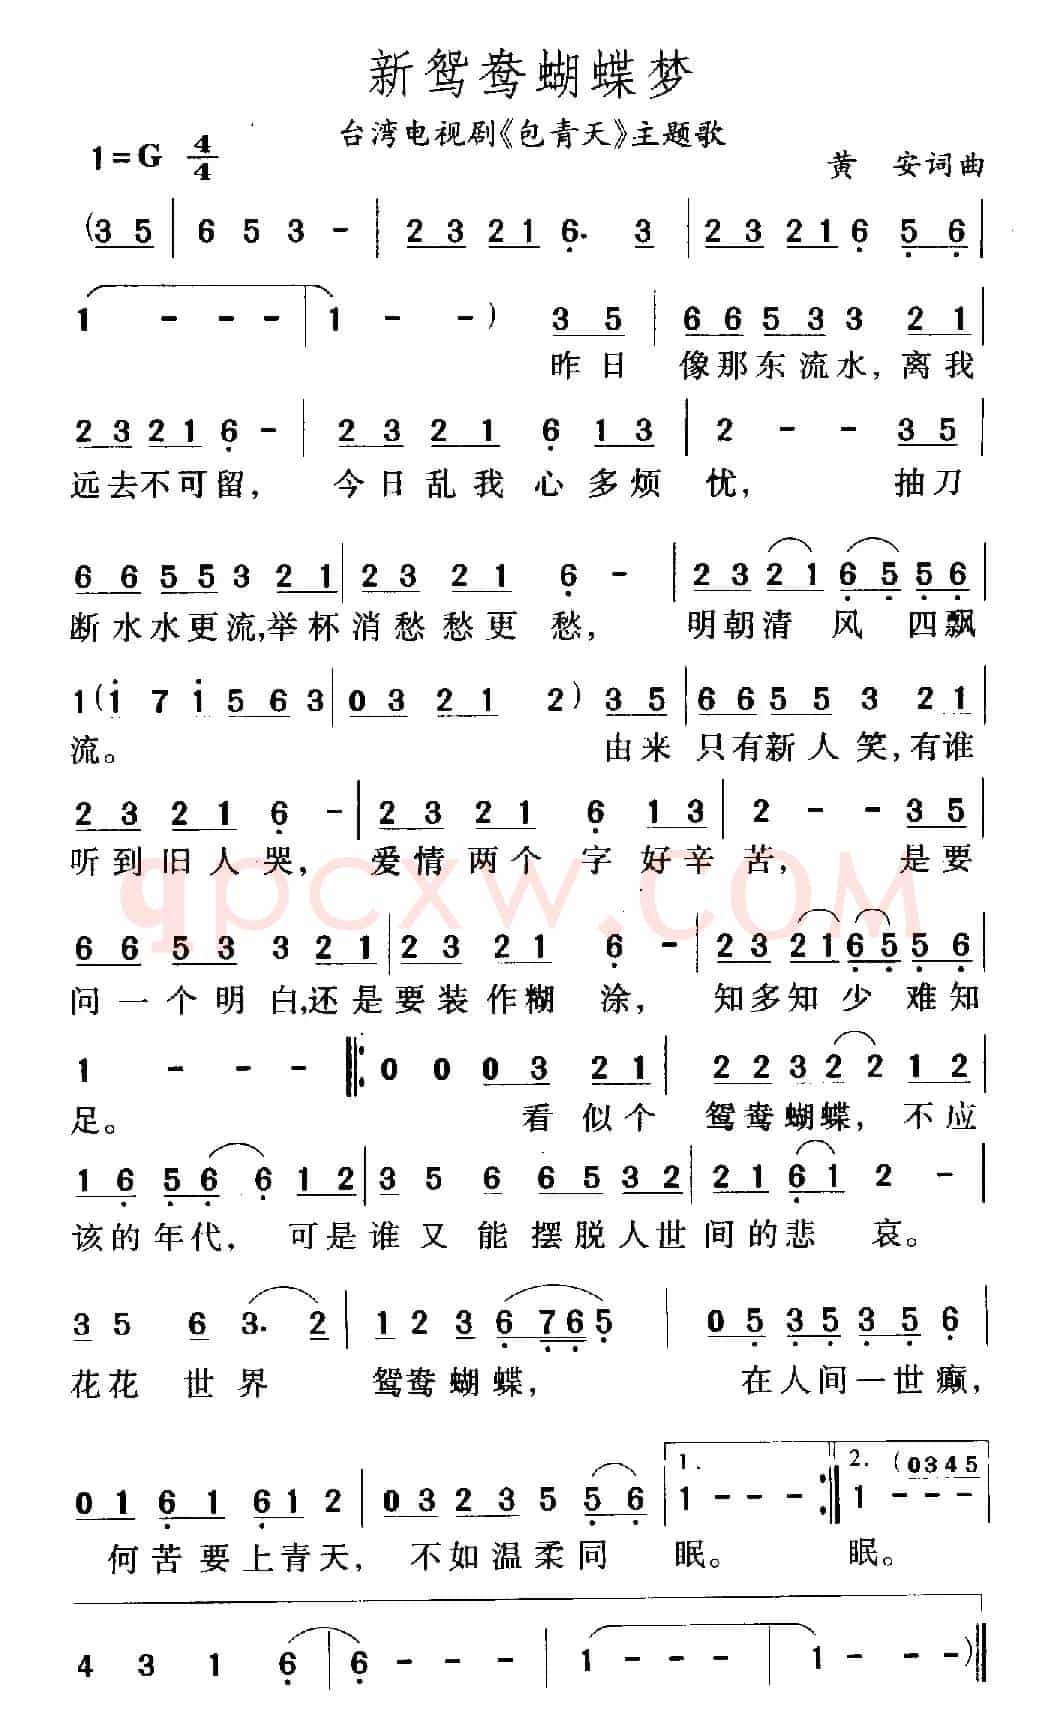 新鸳鸯蝴蝶梦
台湾电视剧《包青天》主题歌
1=G 4/4
黄 安词曲
(3 5 | 6 5 3 - | 2 3 2 1 6. 3 | 2 3 2 1 6 5 6 |
1 - - - | 1 - -) 3 5 | 6 6 5 3 3 2 1 |
昨日 像那东流水,离我
2 3 2 1 6 - | 2 3 2 1 6 1 3 | 2 - - 3 5 |
远去不可留, 今日乱我心多烦忧, 抽刀
6 6 5 5 3 2 1 | 2 3 2 1 6 - | 2 3 2 1 6 5 5 6 |
断水水更流,举杯消愁愁更愁, 明朝清风四飘
1 (i 7 i 5 6 3 | 0 3 2 1 2) 3 5 | 6 6 5 5 3 2 1 |
流。 由来只有新人笑,有谁
2 3 2 1 6 - | 2 3 2 1 6 1 3 | 2 - - 3 5 |
听到旧人哭, 爱情两个字好辛苦, 是要
qpcxw.COM
6 6 5 3 3 2 1 | 2 3 2 1 6 - | 2 3 2 1 6 5 5 6 |
问一个明白,还是要装作糊涂, 知多知少难知
1 - - - |: 0 0 0 3 2 1 | 2 2 3 2 2 1 2 |
足。 看似个鸳鸯蝴蝶, 不应
1 6 5 6 6 1 2 | 3 5 6 6 5 3 2 | 2 1 6 1 2 - |
该的年代, 可是谁又能摆脱人世间的悲哀。
3 5 6 3. 2 | 1 2 3 6 7 6 5 | 0 5 3 5 3 5 6 |
花花世界 鸳鸯蝴蝶, 在人间一世癫,
0 1 6 1 6 1 2 | 0 3 2 3 5 5 6 | 1. 1 - - - :| 2. (0 3 4 5 1 - - -
何苦要上青天, 不如温柔同眠。 眠。
4 3 1 6 | 6 - - - | 1 - - - | 1 - - -) ||